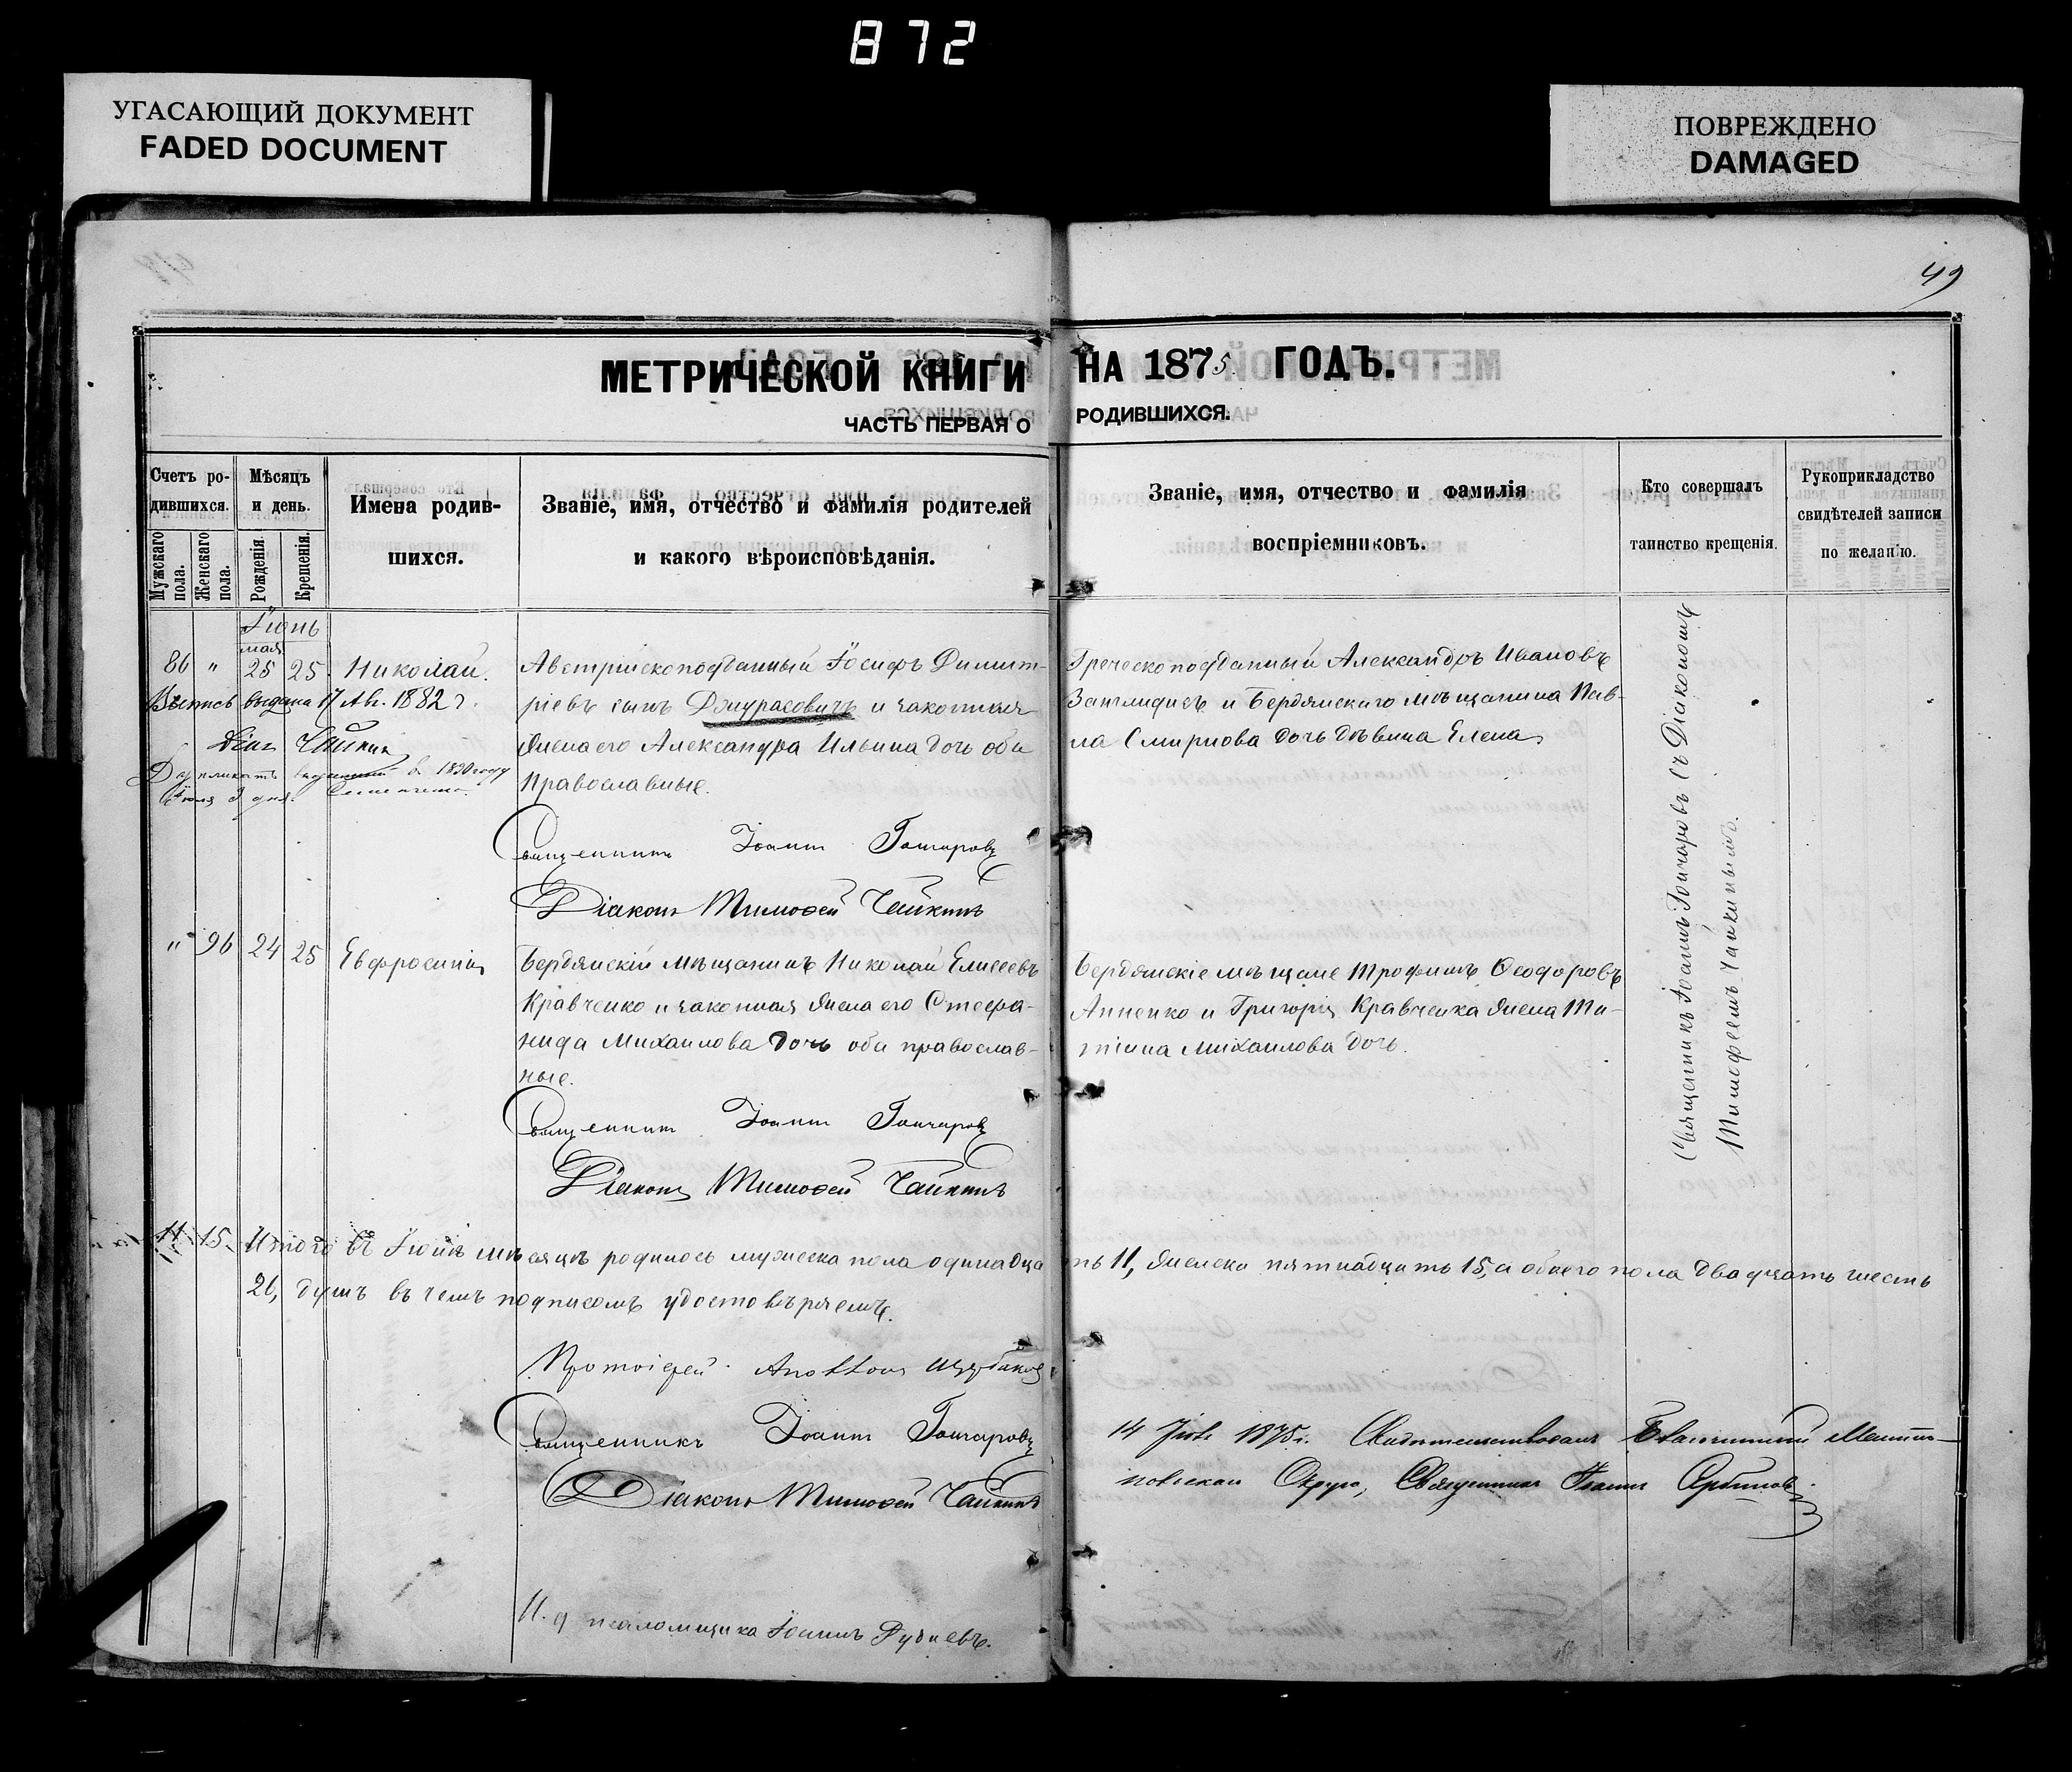 872
УГАСАЮЩИЙ ДОКУМЕНТ
FADED DOCUMENT
ПОВРЕЖДЕНО
DAMAGED
49
МЕТРИЧЕСКОЙ КНИГИ НА 1875 ГОДЪ.
ЧАСТЬ ПЕРВАЯ О РОДИВШИХСЯ.
Счетъ ро-
дившихся.
Мужскаго пола.
Женскаго пола.
Мѣсяцъ
и день.
Рожденія.
Крещенія.
Имена родив-
шихся.
Званіе, имя, отчество и фамилія родителей
и какого вѣроисповѣданія.
Званіе, имя, отчество и фамилія
воспріемниковъ.
Кто совершалъ
таинство крещенія.
Рукоприкладство
свидѣтелей записи
по желанію.
Іюнь
мая
86 " 25 25 Николай.
Выпись выдана 17 Авг. 1882 г.
Діак Чайкин
Дупликатъ выданный в 1890 году
Іюля 3 дня.
Австрійскоподданный Іосифъ Димит-
ріевъ сынъ Джурасовичъ и законная
жена его Александра Ильина дочь оба
Православные.
Священникъ Іоаннъ Гончаровъ
Діаконъ Тимоѳей Чайкинъ
Греческоподданный Александръ Ивановъ
и Бердянскаго мѣщанина Пав-
ла Смирнова дочь дѣвица Елена
Священникъ Іоаннъ Гончаровъ съ Діакономъ
Тимофеемъ Чайкинымъ.
" 96 24 25 Евфросинія
Бердянскій мѣщанинъ Николай Елисеевъ
Кравченко и законная жена его Стефа-
нида Михаилова дочь оба православ-
ные.
Священникъ Іоаннъ Гончаровъ
Діаконъ Тимоѳей Чайкинъ
Бердянскіе мѣщане Трофимъ Ѳеодоровъ
Анненко и Григорія Кравченка жена Та-
тіана Михаилова дочь.
11 15. Итого въ Іюнѣ мѣсяцѣ родилось мужеска пола одинадцать 11, женска пятнадцать 15, а обоего пола двадцать шесть
26, душъ въ чемъ подписомъ удостовѣряемъ.
Протоіерей
Священникъ Іоаннъ Гончаровъ
Діаконъ Тимоѳей Чайкинъ
И. д псаломщика Іоаннъ Рудневъ.
14 1875 г. Свидѣтельствовалъ Благочинный
Округа, Священникъ Іоаннъ